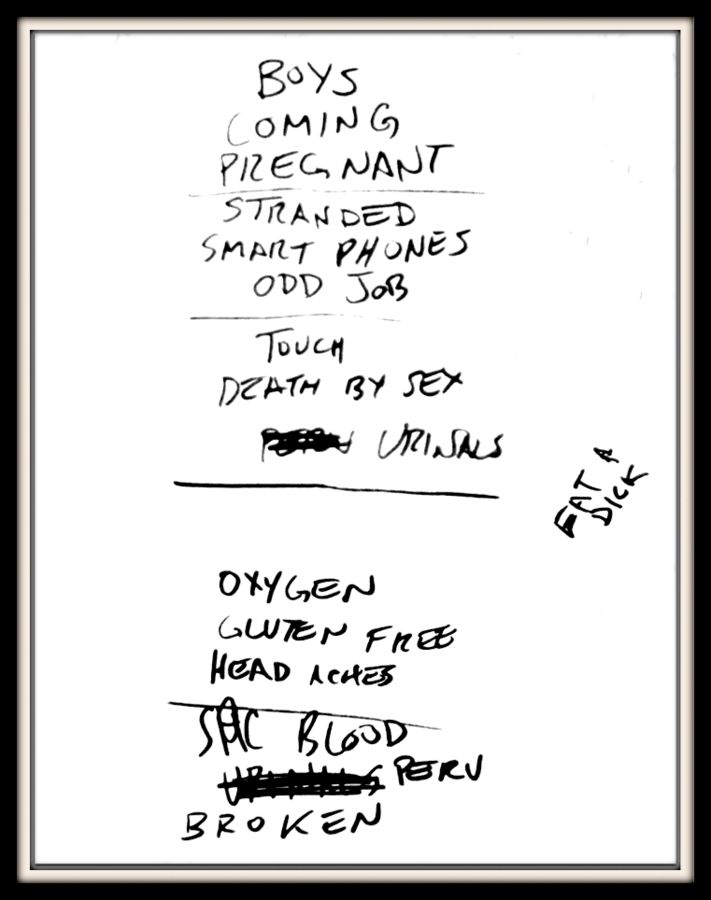 BOYS
COMING
PREGNANT
STRANDED
SMART PHONES
ODD JOB
TOUCH
DEATH BY SEX
URINALS
EAT A
DICK
OXYGEN
GLUTEN FREE
HEAD ACHES
SAC BLOOD
PERU
BROKEN